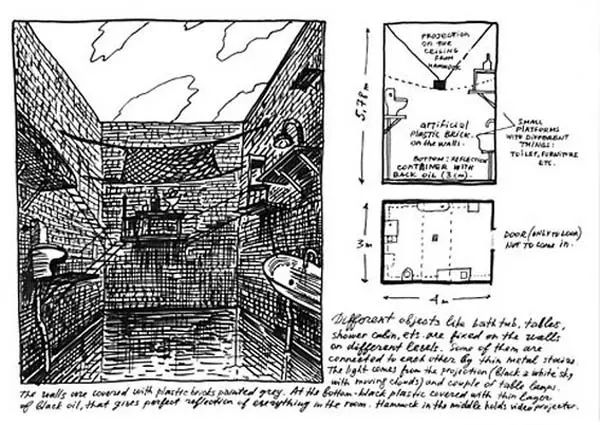 PROJECTION
ON THE
CEILING
FROM
HAMMOCK
5,78 m
artificial
plastic brick.
on the walls.
BOTTOM: REFLECTION
CONTAINER WITH
BACK OIL (3 cm).
SMALL
PLATFORMS
WITH DIFFERENT
THINGS:
TOILET, FURNITURE
ETC.
3 m
4 m
DOOR (ONLY TO LOOK)
NOT TO COME IN.
Different objects like bath tub, tables,
shower cabin, ets are fixed on the walls
on different levels. Some of them are
connected to each other by thin metal staires.
The light comes from the projection (black & white sky
with moving clouds) and couple of table lamps.
The walls are covered with plastic bricks painted grey. At the bottom-black plastic covered with thin layer
of black oil, that gives perfect reflection of everything in the room. Hammock in the middle holds video projector.